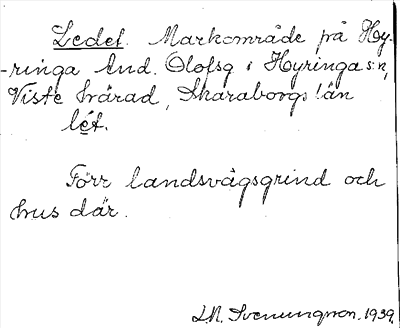 Ledet. Markområde på Hy-
-ringa And. Olofsg i Hyringa s:n,
Viste härad, Skaraborgs län
lét.
Förr landsvägsgrind och
hus där.
J.N. Svenungsson. 1939.